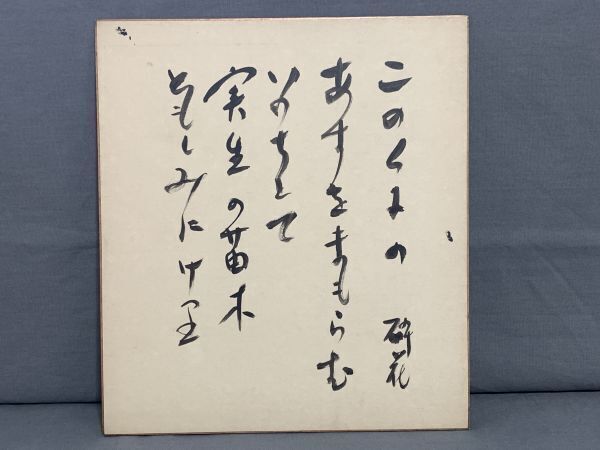 このくにの
あすをまもらむ
いのちとて
実生の苗木
ともしみにけ里
砕花